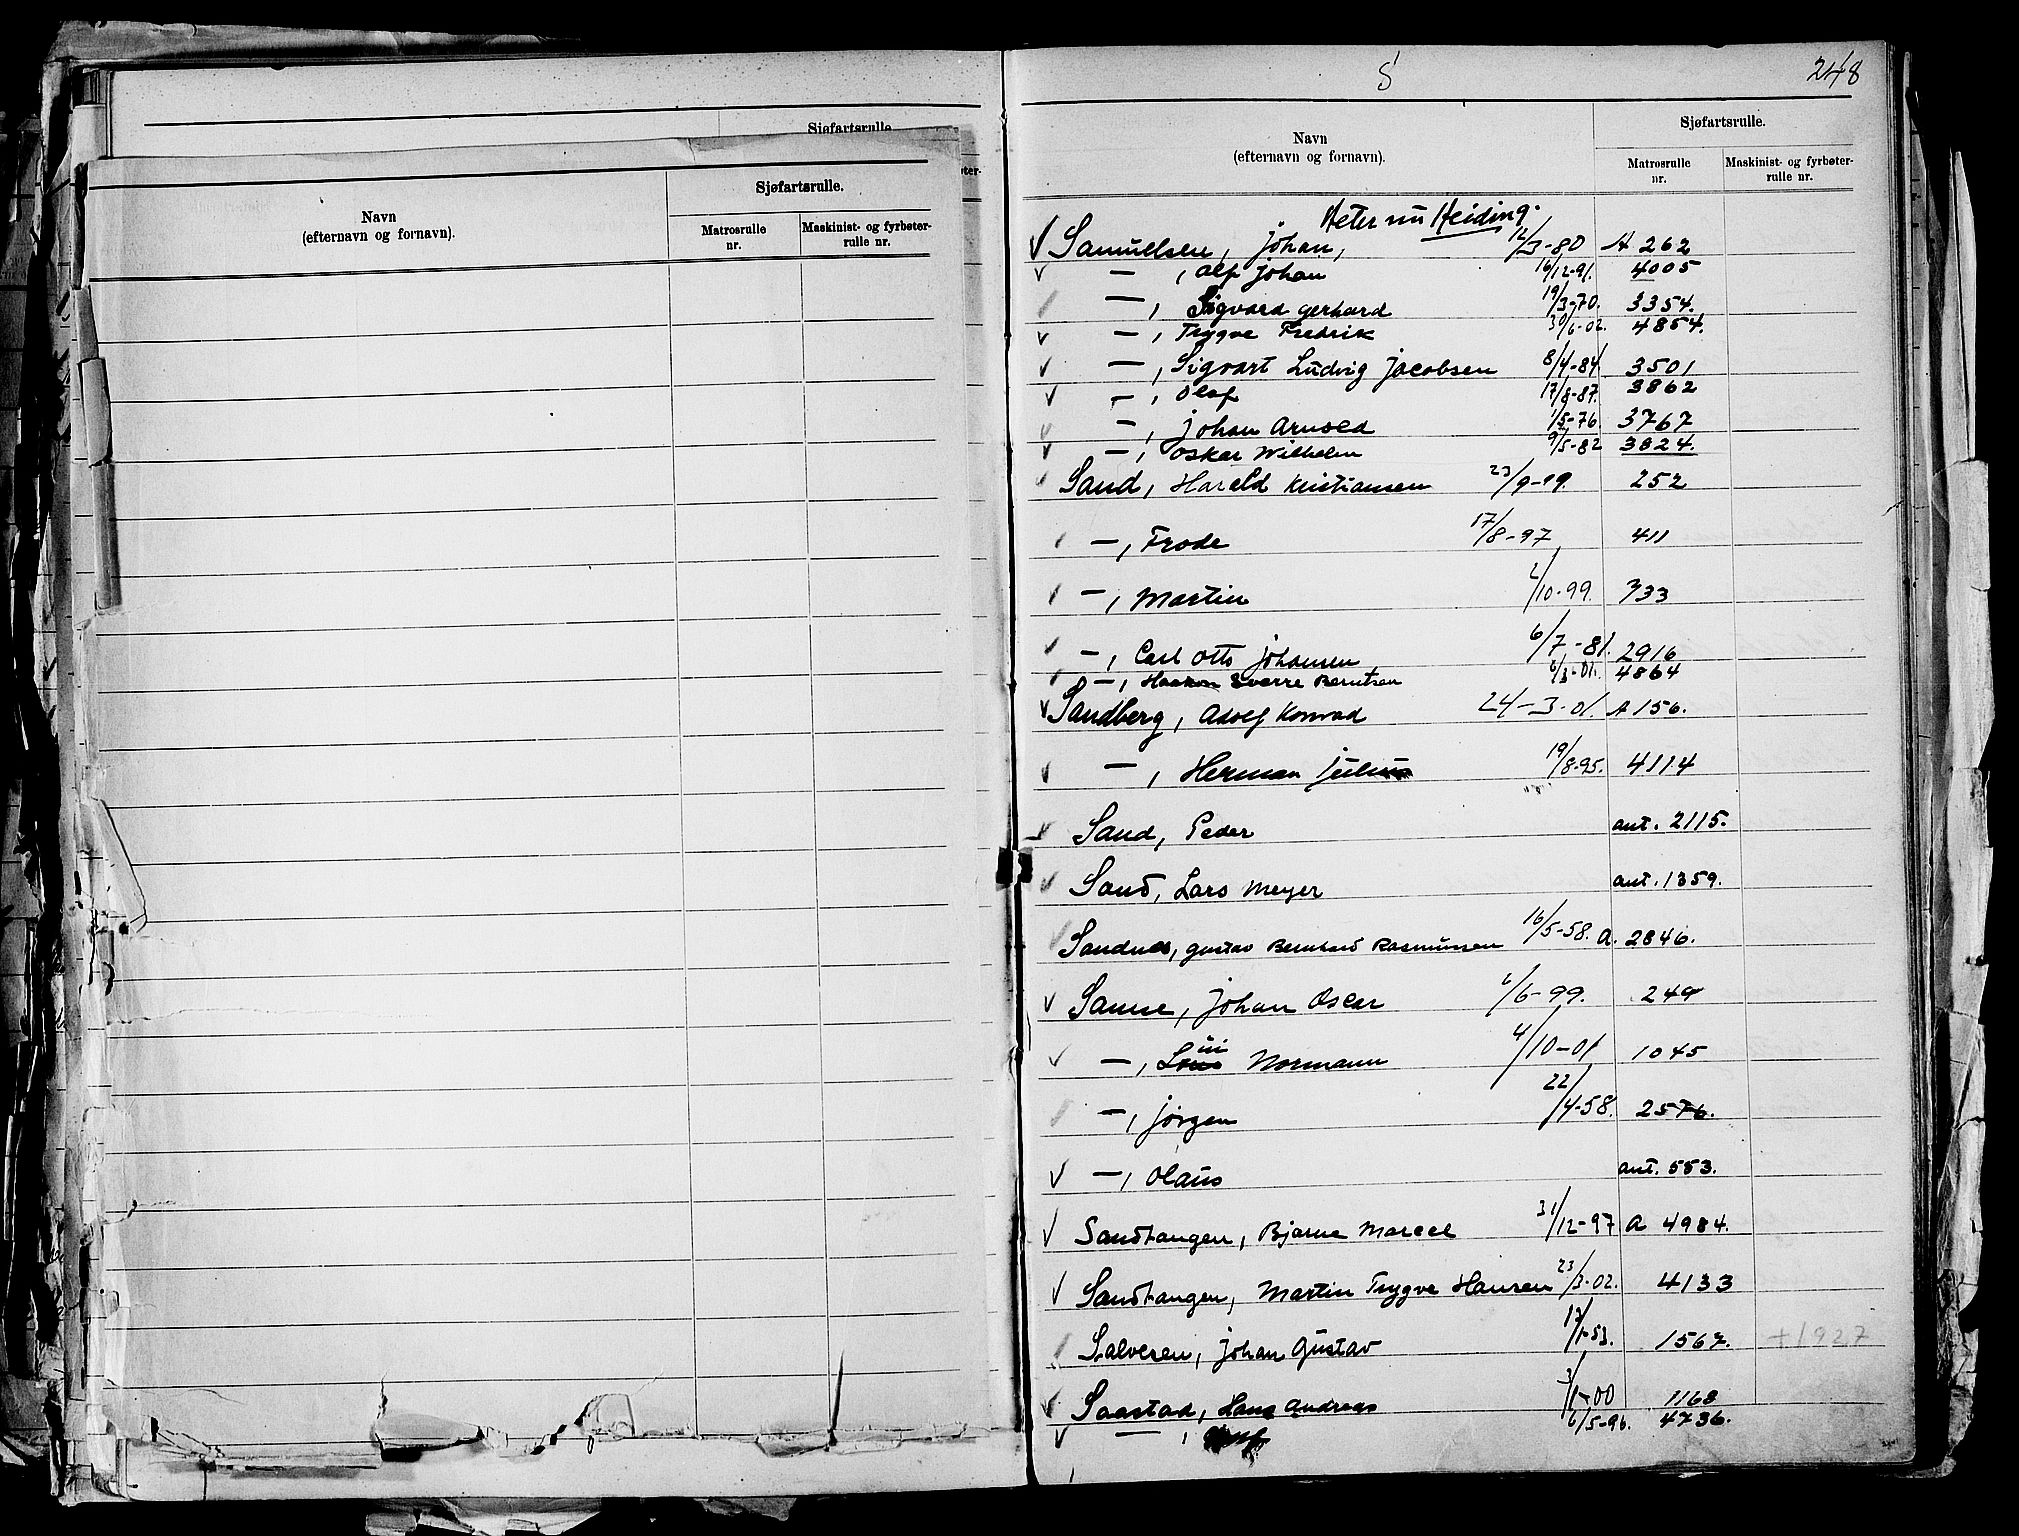 Sjøfartsrulle.
Sjøfartsrulle.
Navn
(efternavn og fornavn).
Matrosrulle
nr.
Maskinist- og fyrbøter-
rulle nr.
S
248
Navn
(efternavn og fornavn).
Sjøfartsrulle.
Matrosrulle
nr.
Maskinist- og fyrbøter-
rulle nr.
Heter nu Heiding.
√ Samuelsen, Johan, 12/3-80 A 262
√ — , Alf Johan 16/12-91. 4005
— , Sigvard Gerhard 19/3-70. 3354.
√ — , Trygve Fredrik 30/6-02. 4854.
√ — , Sigvart Ludvig Jacobsen 8/4-84. 3501
√ — , Olaf 17/8-87. 3862
— , Johan Arnold 1/5-76. 3767
√ — , Oskar Wilhelm 9/5-82 3824.
Sand, Harald Kristiansen 23/9-99. 252
— , Frode 17/8-97 411
— , Martin 2/10-99. 733
— , Carl Otto Johansen, 6/7-81. 2916
— , Haakon Sverre Berntsen 6/3-01. 4864
√ Sandberg, Adolf Konrad 24-3-01. A 156.
√ — , Herman Julius 19/8-95. 4114
√ Sand, Peder ant. 2115.
√ Sand, Lars Meyer ant. 1359.
Sandnes, Gustav Bernhard Rasmussen 16/5-58. A. 2846.
√ Sanne, Johan Oscar 6/6-99. 249
√ — , Normann 4/10-01 1045
— , Jörgen 22/4-58. 2576.
√ — , Olaus ant. 553.
√ Sandtangen, Bjarne Marcel 31/12-97 A 4984.
√ Sandtangen, Martin Trygve Hansen 23/3-02. 4133
Salvesen, Johan Gustav 17/1-53. 1567. +1927
√ Saastad, Hans Andreas 3/1-00 1168
√ — , 6/5-96. 4736.